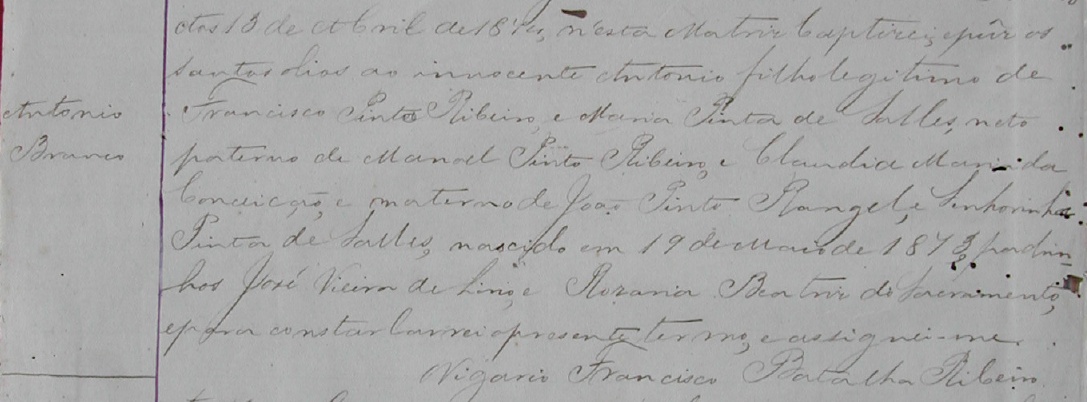 Aos 13 de Abril de 1874, n'esta Matriz baptizei, e puz os
santos olios ao innocente Antonio filho legitimo de
Antonio
Francisco Pinto Ribeiro, e Maria Pinta de Salles, neto
Branco
paterno de Manoel Pinto Ribeiro, e Claudia Maria da
Conceição, e materno de João Pinto Rangel, e Senhorinha
Pinta de Salles, nascido em 19 de Maio de 1873, padri-
nhos José Vieira de e Rozaria Beatriz do Sacramento,
e para constar lavrei o presente termo, e assignei-me.
Vigario Francisco Batalha Ribeiro